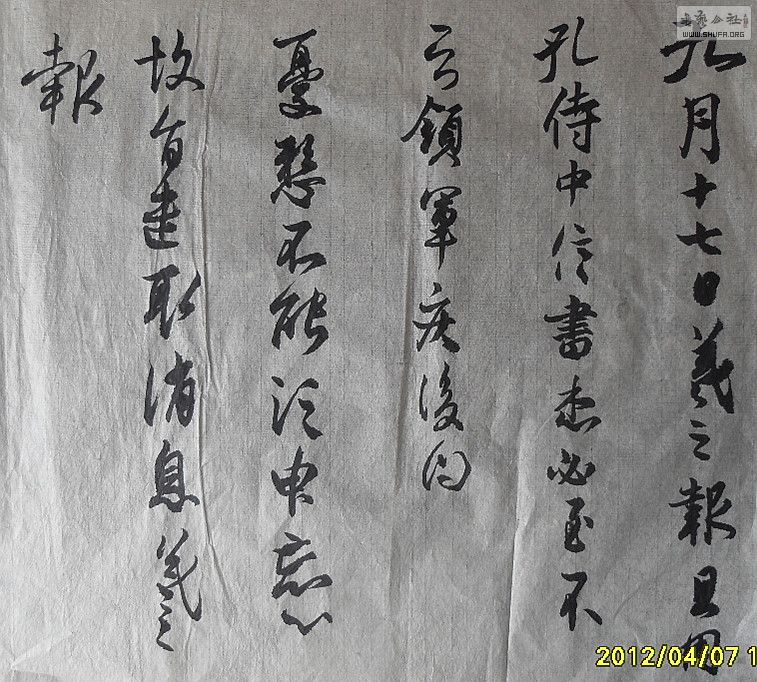 九月十七日羲之報且因
孔侍中信書想必至不
知領軍疾後問
憂懸不能須臾忘心
故旨遣取消息羲之
報
书艺公社
WWW.SHUFA.ORG
2012/04/07 1